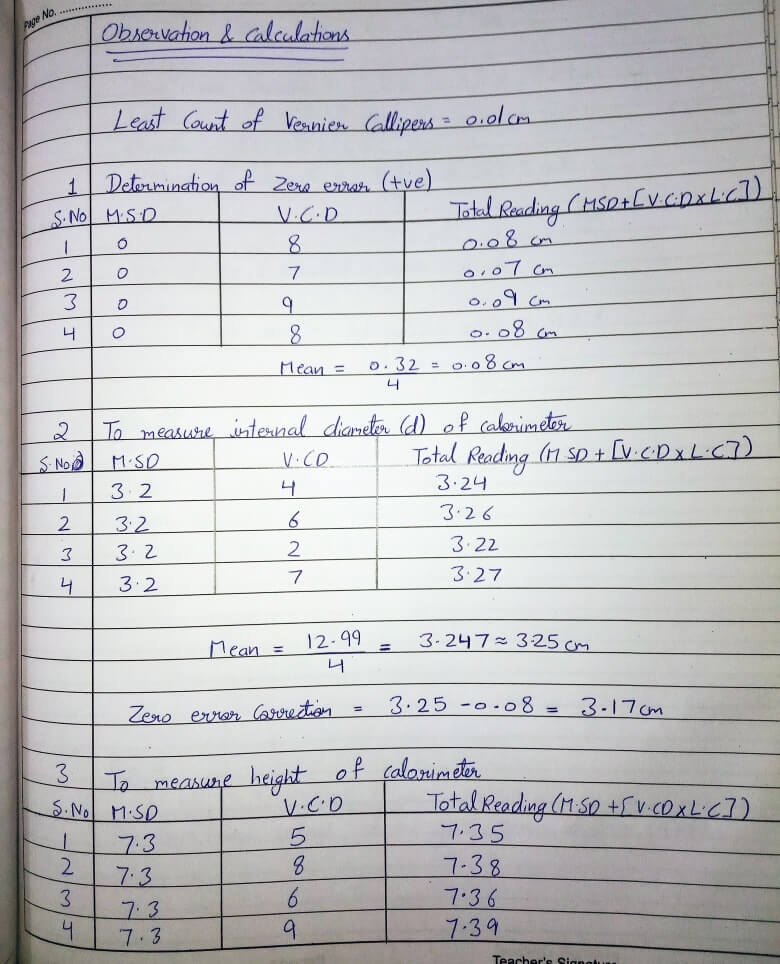 Page No. ................
Observation & Calculations
Least Count of Vernier Callipers = 0.01cm
1 Determination of Zero error (+ve)
S.No M.S.D V.C.D Total Reading (MSD+[V.C.D×L.C])
1 0 8 0.08 cm
2 0 7 0.07 cm
3 0 9 0.09 cm
4 0 8 0.08 cm
Mean = 0.32/4 = 0.08cm
2 To measure internal diameter (d) of calorimeter
S.No M.SD V.CD Total Reading (M.SD + [V.C.D×L.C])
1 3.2 4 3.24
2 3.2 6 3.26
3 3.2 2 3.22
4 3.2 7 3.27
Mean = 12.99/4 = 3.247 ≈ 3.25 cm
Zero error Correction = 3.25 - 0.08 = 3.17cm
3 To measure height of calorimeter
S.No M.SD V.C.D Total Reading (M.SD + [V.CD×L.C])
1 7.3 5 7.35
2 7.3 8 7.38
3 7.3 6 7.36
4 7.3 9 7.39
Teacher's